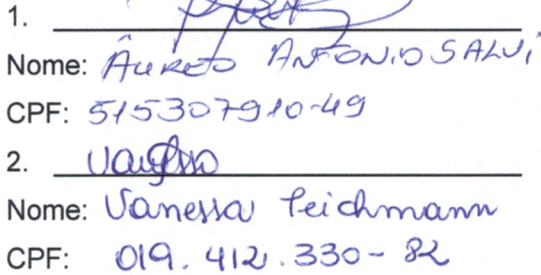 1.
Nome: Âureo Antonio Salvi
CPF: 515307910-49
2.
Nome: Vanessa Teichmann
CPF: 019.412.330-82